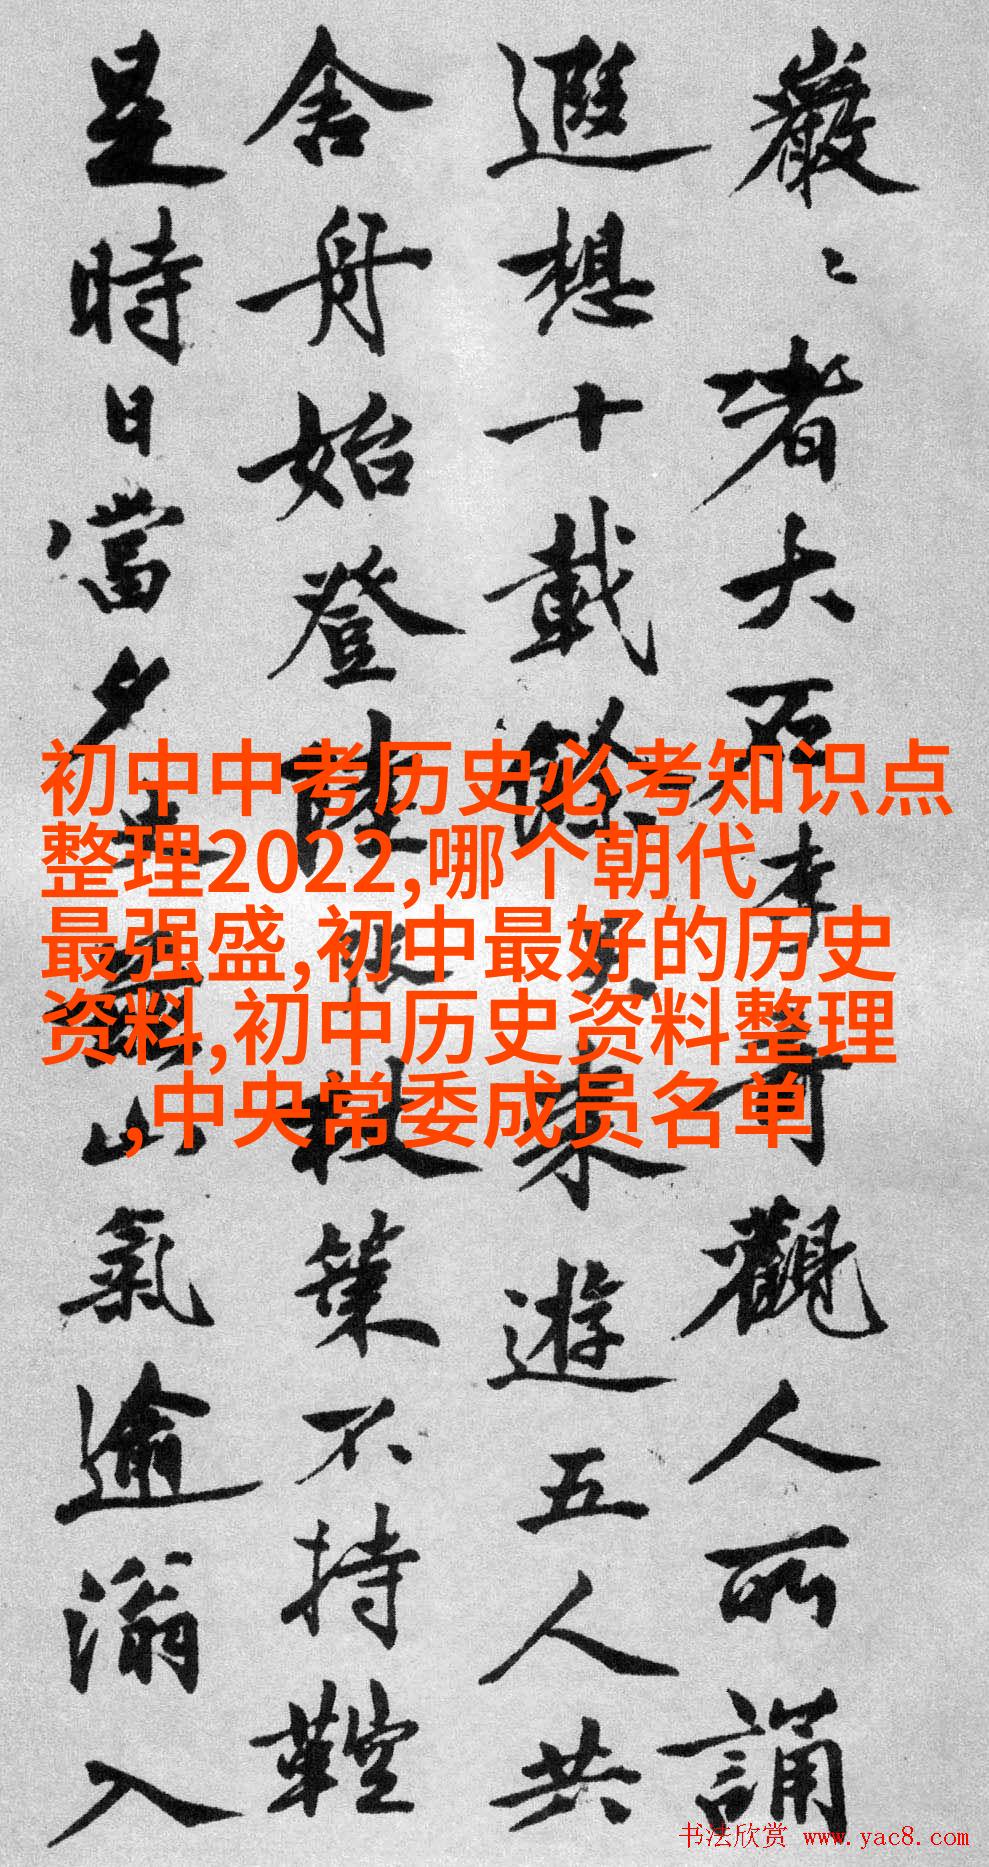 巖〻者大
奇觀人所誦
遐想十載餘
來遊五人共
舍舟始登陸
杖策不持鞚
是時日當夕
山氣逾滃入
初中中考历史必考知识点
整理2022,哪个朝代
最强盛,初中最好的历史
资料,初中历史资料整理
,中央常委成员名单
书法欣赏 www.yac8.com